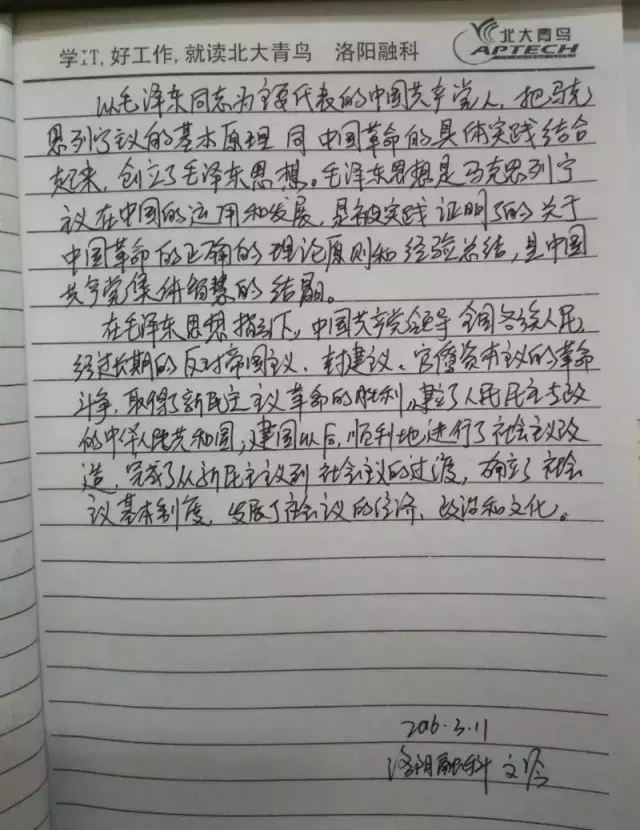 学IT, 好工作, 就读北大青鸟 洛阳融科
北大青鸟
APTECH
以毛泽东同志为主要代表的中国共产党人，把马克
思列宁主义的基本原理同中国革命的具体实践结合
起来，创立了毛泽东思想。毛泽东思想是马克思列宁
主义在中国的运用和发展，是被实践证明了的关于
中国革命的正确的理论原则和经验总结，是中国
共产党集体智慧的结晶。
在毛泽东思想指引下，中国共产党领导全国各族人民，
经过长期的反对帝国主义、封建主义、官僚资本主义的革命
斗争，取得了新民主主义革命的胜利，建立了人民民主专政
的中华人民共和国，建国以后，顺利地进行了社会主义改
造，完成了从新民主主义到社会主义的过渡，确立了社会
主义基本制度，发展了社会主义的经济、政治和文化。
2016.3.11
洛阳融科